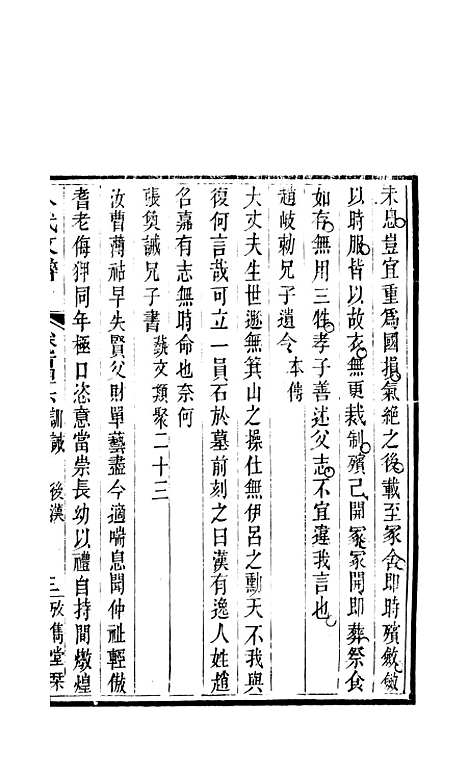 未息豈宜重爲國損氣絶之後載至冢舍即時殯斂斂
以時服皆以故衣無更裁制殯已開冢冢開即葬祭食
如存無用三牲孝子善述父志不宜違我言也
趙岐勅兄子遺令 本傳
大丈夫生世遯無箕山之操仕無伊呂之勳天不我與
復何言哉可立一員石於墓前刻之曰漢有逸人姓趙
名嘉有志無時命也奈何
張奐誡兄子書 藝文類聚二十三
汝曹薄祜早失賢父財單藝盡今適喘息聞仲祉輕傲
耆老侮狎同年極口恣意當崇長幼以禮自持聞燉煌
八代文粹 訓誡 後漢 三 攷雋堂栞